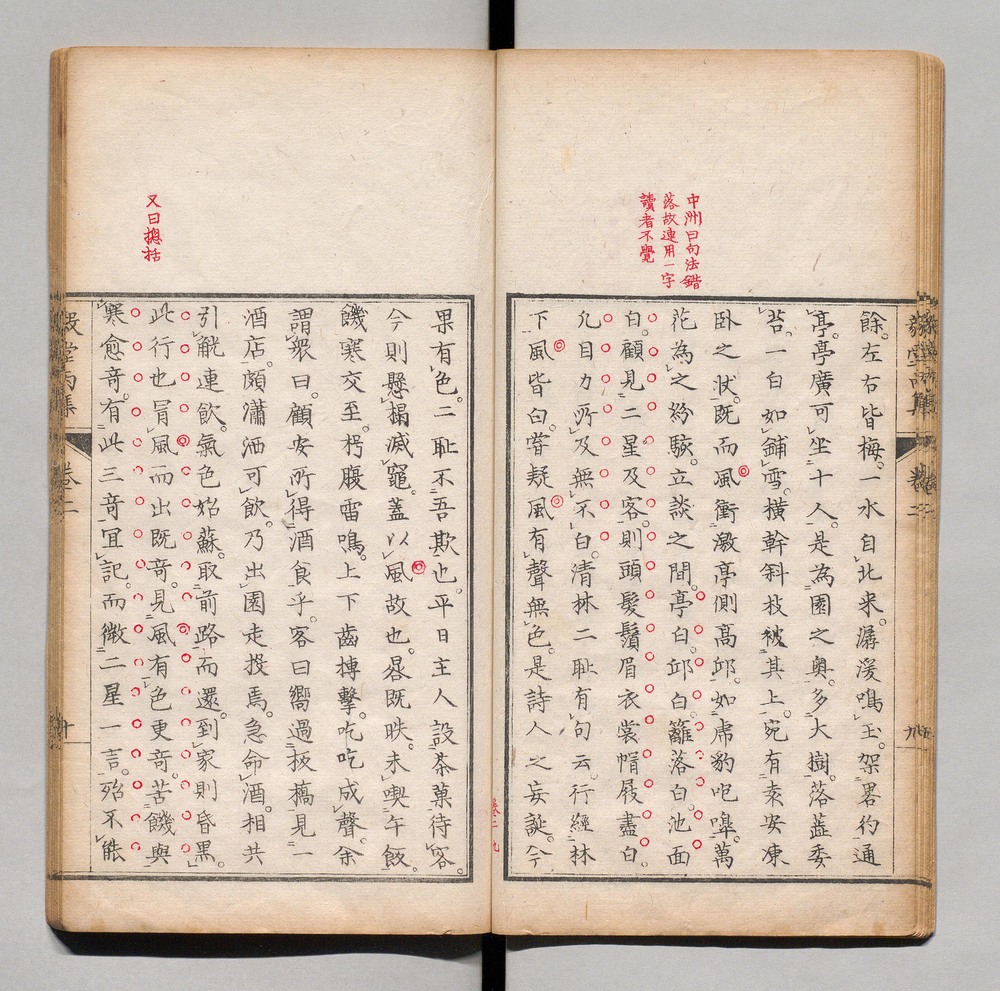 中洲曰句法錯
落故連用一字
讀者不覺
餘左右皆梅一水自北来潺湲鳴玉架畧彴通
亭亭廣可坐十人是為園之奥多大樹落蕋委
苔一白如鋪雪横幹斜枝被其上宛有袁安凍
卧之状既而風衝激亭側高邱如虎豹咆嘷萬
花為之紛駭立談之間亭白邱白籬落白池面
白顧見二星及客則頭髮鬚眉衣裳帽屐盡白
凡目力所及無不白清林二耻有句云行經林
下風皆白嘗疑風有聲無色是詩人之妄誕今
又曰摠括
果有色二耻不吾欺也平日主人設茶菓待客
今則懸榻滅竈蓋以風故也晷既昳未喫午飯
饑寒交至枵腹雷鳴上下齒搏擊吃吃成聲余
謂衆曰顧安所得酒食乎客曰嚮過板橋見一
酒店頗瀟洒可飲乃出園走投焉急命酒相共
引觥連飲氣色始蘇取前路而還到家則昏黒
此行也冐風而出既竒見風有色更竒苦饑與
寒愈竒有此三竒冝記而微二星一言殆不能
卷二
十
卷二
九